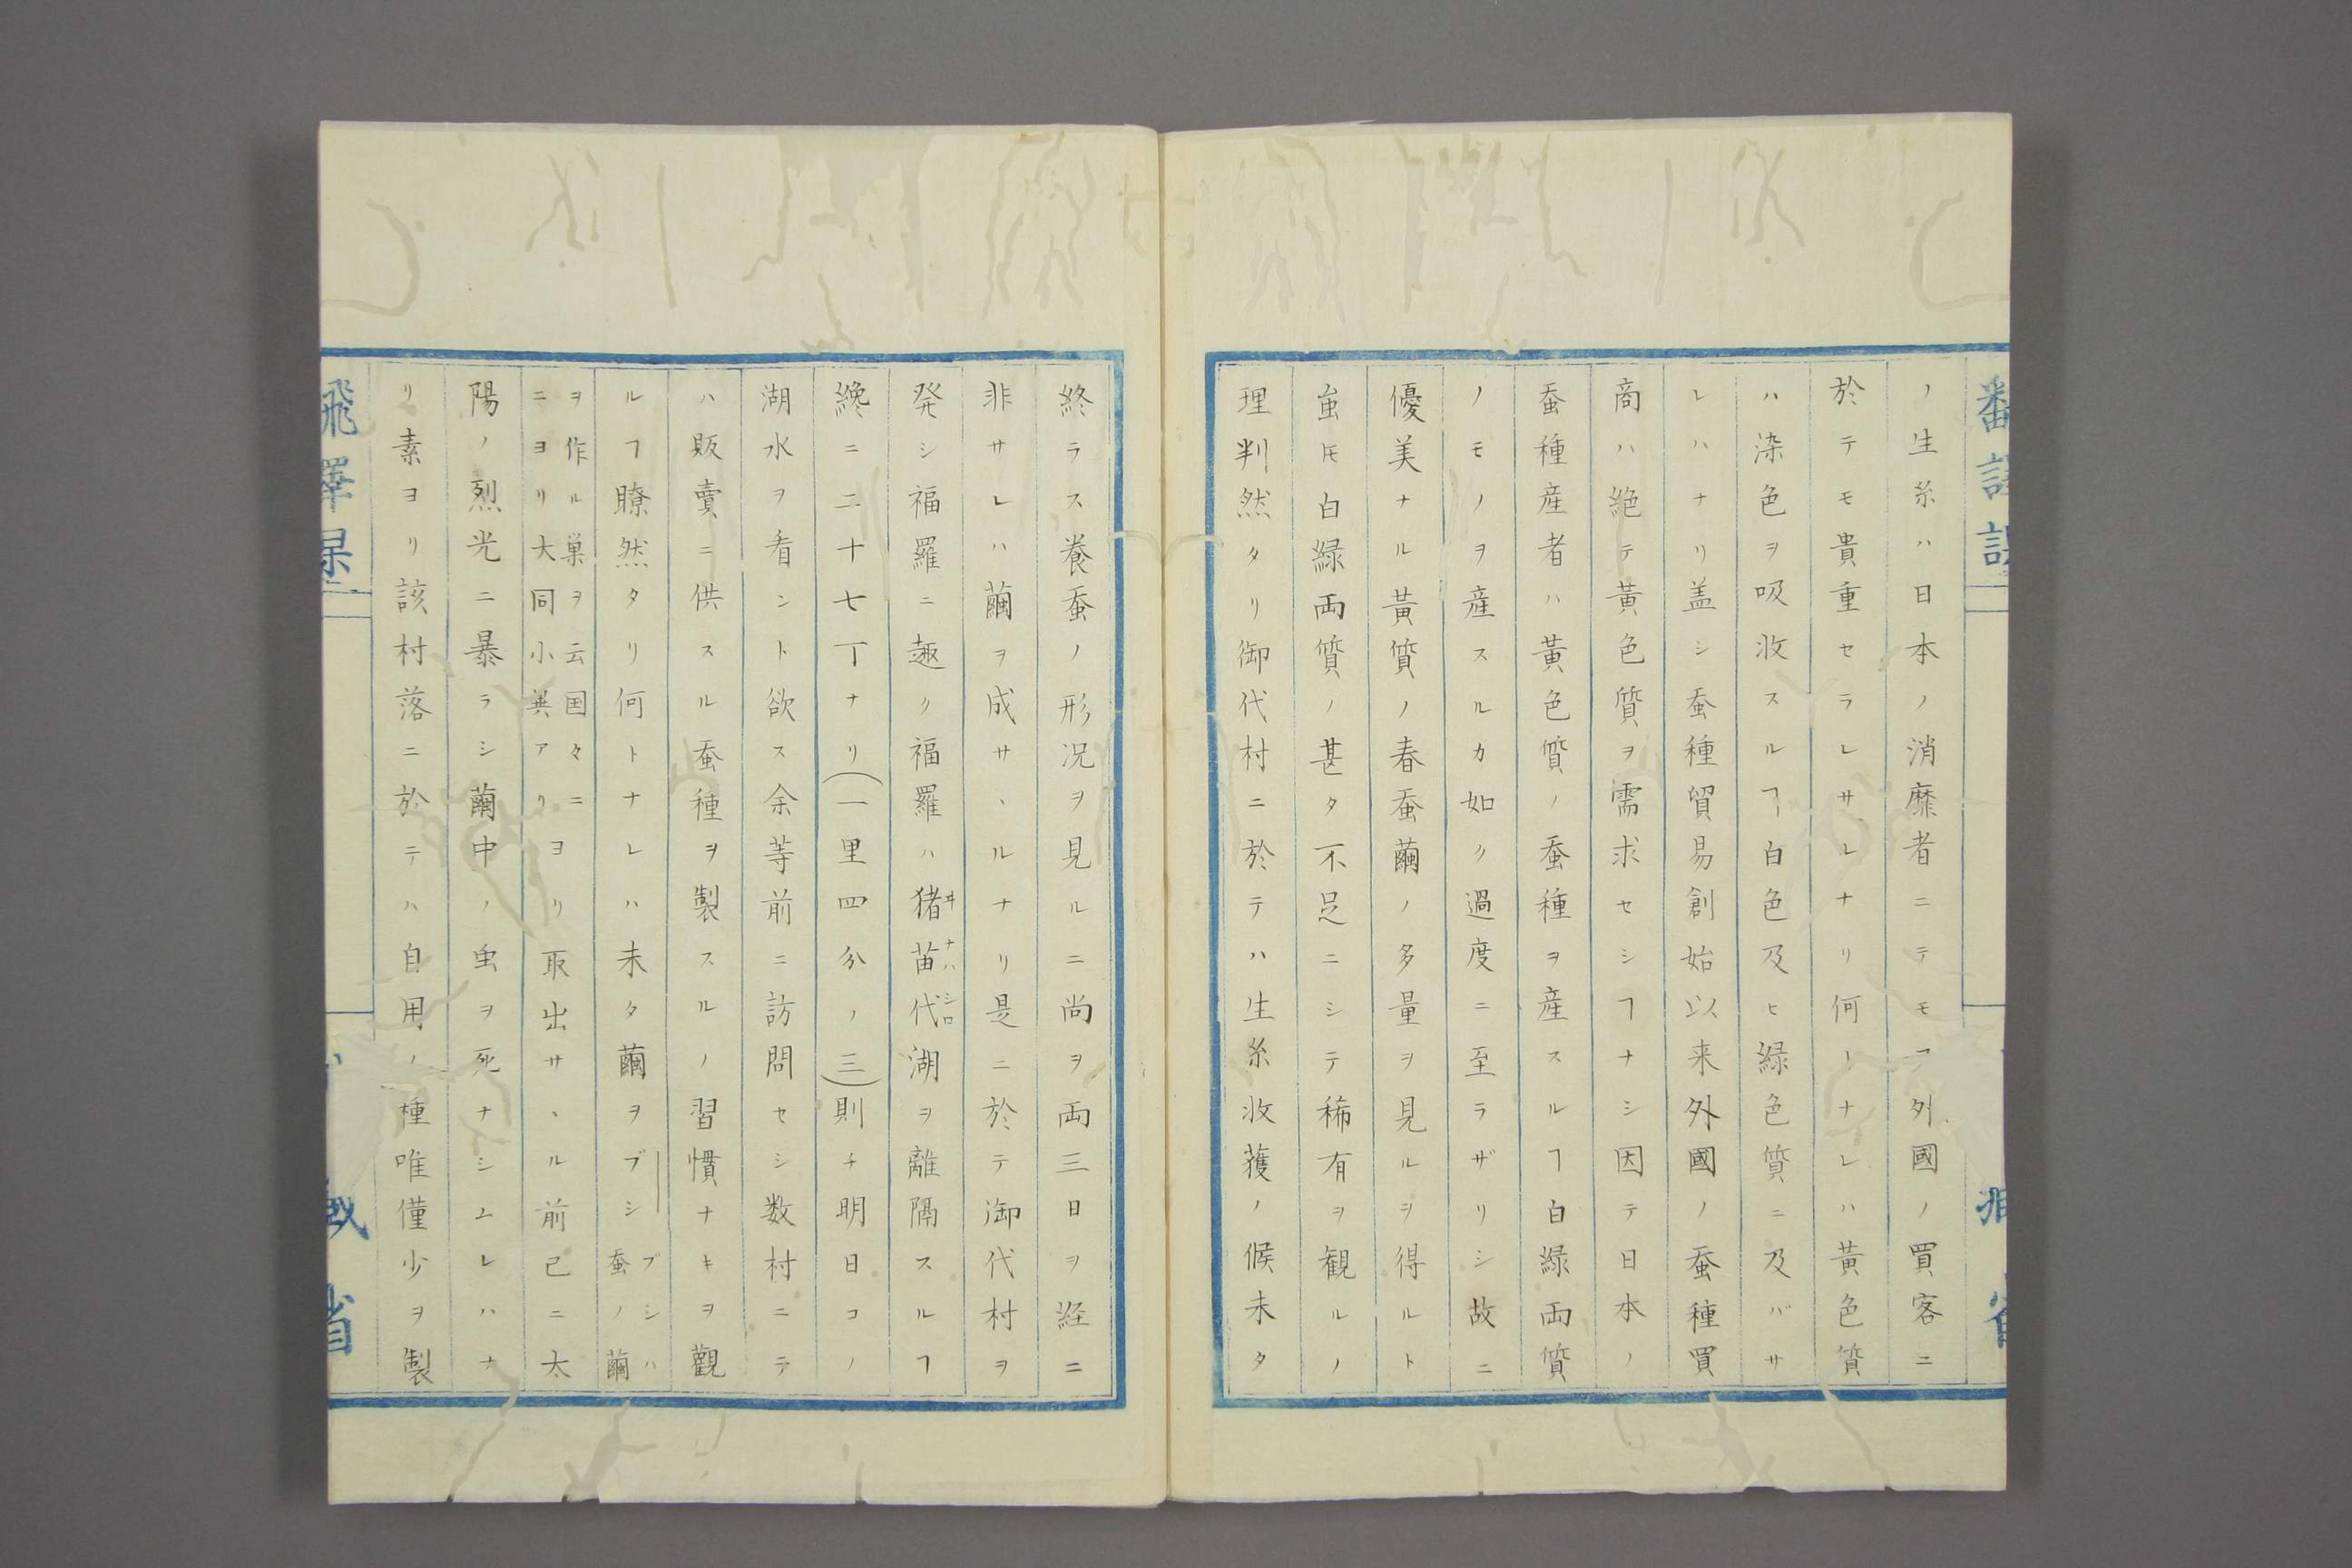 ノ生糸ハ日本ノ消靡者ニテモヿ外國ノ買客ニ
於テモ貴重セラレサルナリ何ーナレハ黃色質
ハ染色ヲ吸收スルヿ白色及ヒ緑色質ニ及バサ
レハナリ盖シ蚕種貿易創始以来外國ノ蚕種買
商ハ絶テ黃色質ヲ需求セシヿナシ因テ日本ノ
蚕種産者ハ黃色質ノ蚕種ヲ産スルヿ白緑両質
ノモノヲ産スルカ如ク過度ニ至ラザリシ故ニ
優美ナル黃質ノ春蚕繭ノ多量ヲ見ルヲ得ルト
虽𪜈白緑両質ノ甚タ不足ニシテ稀有ヲ観ルノ
理判然タリ御代村ニ於テハ生糸收獲ノ候未タ
終ラス養蚕ノ形况ヲ見ルニ尚ヲ両三日ヲ経ニ
非サレハ繭ヲ成サヽルナリ是ニ於テ御代村ヲ
発シ福羅ニ趣ク福羅ハ猪苗代湖ヲ離隔スルヿ
ヰナハシロ
纔ニ二十七丁ナリ(一里四分ノ三)則チ明日コノ
湖水ヲ看ント欲ス余等前ニ訪問セシ数村ニテ
ハ販賣ニ供スル蚕種ヲ製スルノ習慣ナキヲ觀
ルヿ瞭然タリ何トナレハ未タ繭ヲブシ
ブシハ
蚕ノ繭
ヲ作ル巣ヲ云国々ニ
ニヨリ大同小異アリ
ヨリ取出サヽル前已ニ太
陽ノ烈光ニ暴ラシ繭中ノ虫ヲ死ナシムレハナ
リ素ヨリ該村落ニ於テハ自用ノ種唯僅少ヲ製